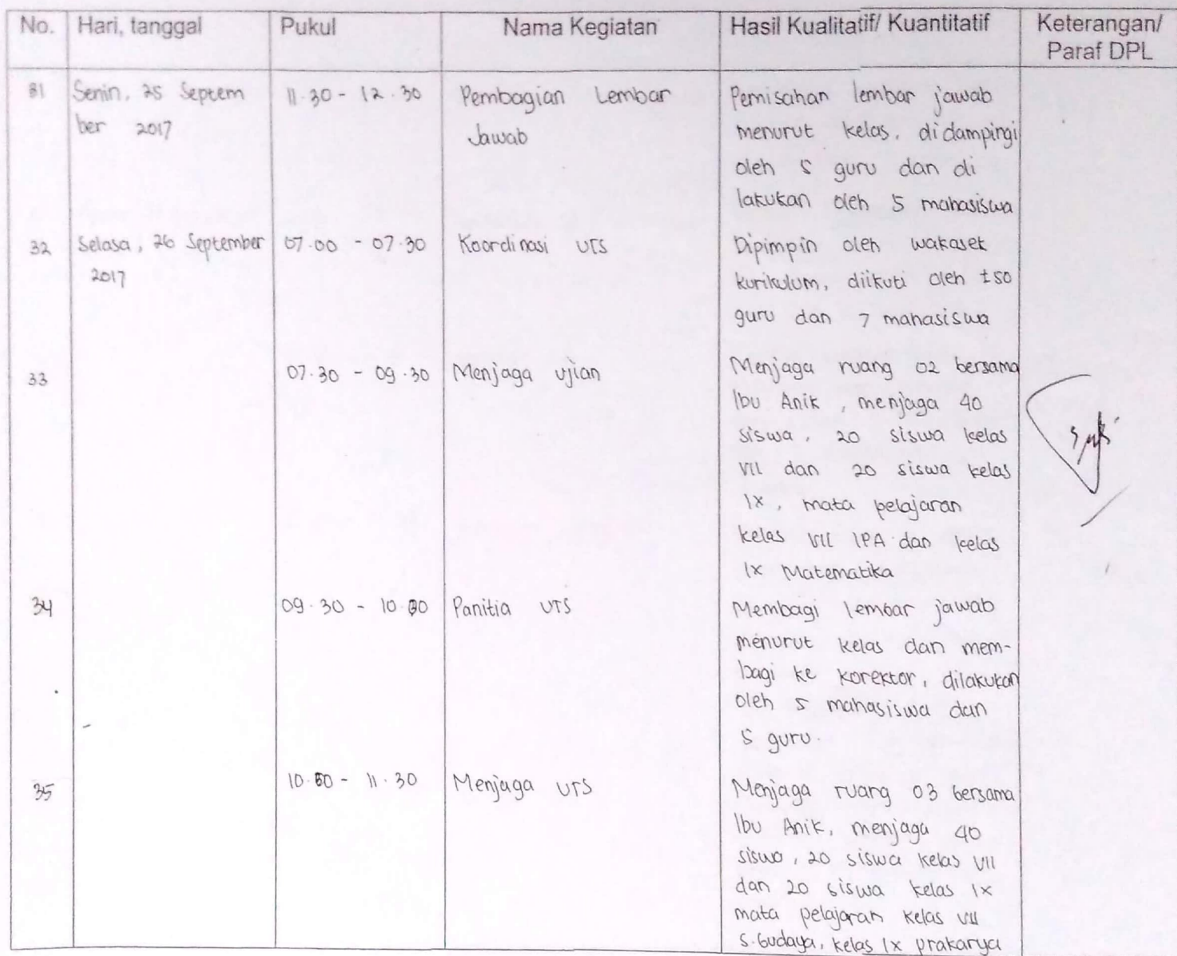 No. Hari, tanggal Pukul Nama Kegiatan Hasil Kualitatif/ Kuantitatif Keterangan/
Paraf DPL
31 Senin, 25 Septem 11.30 - 12.30 Pembagian Lembar Pemisahan lembar jawab
ber 2017 Jawab menurut kelas, didampingi
oleh 5 guru dan di
lakukan oleh 5 mahasiswa
32 Selasa, 26 September 07.00 - 07.30 Koordinasi UTS Dipimpin oleh wakasek
2017 kurikulum, diikuti oleh ±50
guru dan 7 mahasiswa
33 07.30 - 09.30 Menjaga ujian Menjaga ruang 02 bersama
Ibu Anik, menjaga 40
siswa, 20 siswa kelas
VII dan 20 siswa kelas
IX, mata pelajaran
kelas VII IPA dan kelas
IX Matematika
34 09.30 - 10.00 Panitia UTS Membagi lembar jawab
menurut kelas dan mem-
bagi ke korektor, dilakukan
oleh 5 mahasiswa dan
5 guru.
35 10.00 - 11.30 Menjaga UTS Menjaga ruang 03 bersama
Ibu Anik, menjaga 40
siswa, 20 siswa kelas VII
dan 20 siswa kelas IX
mata pelajaran kelas VII
S.Budaya, kelas IX prakarya